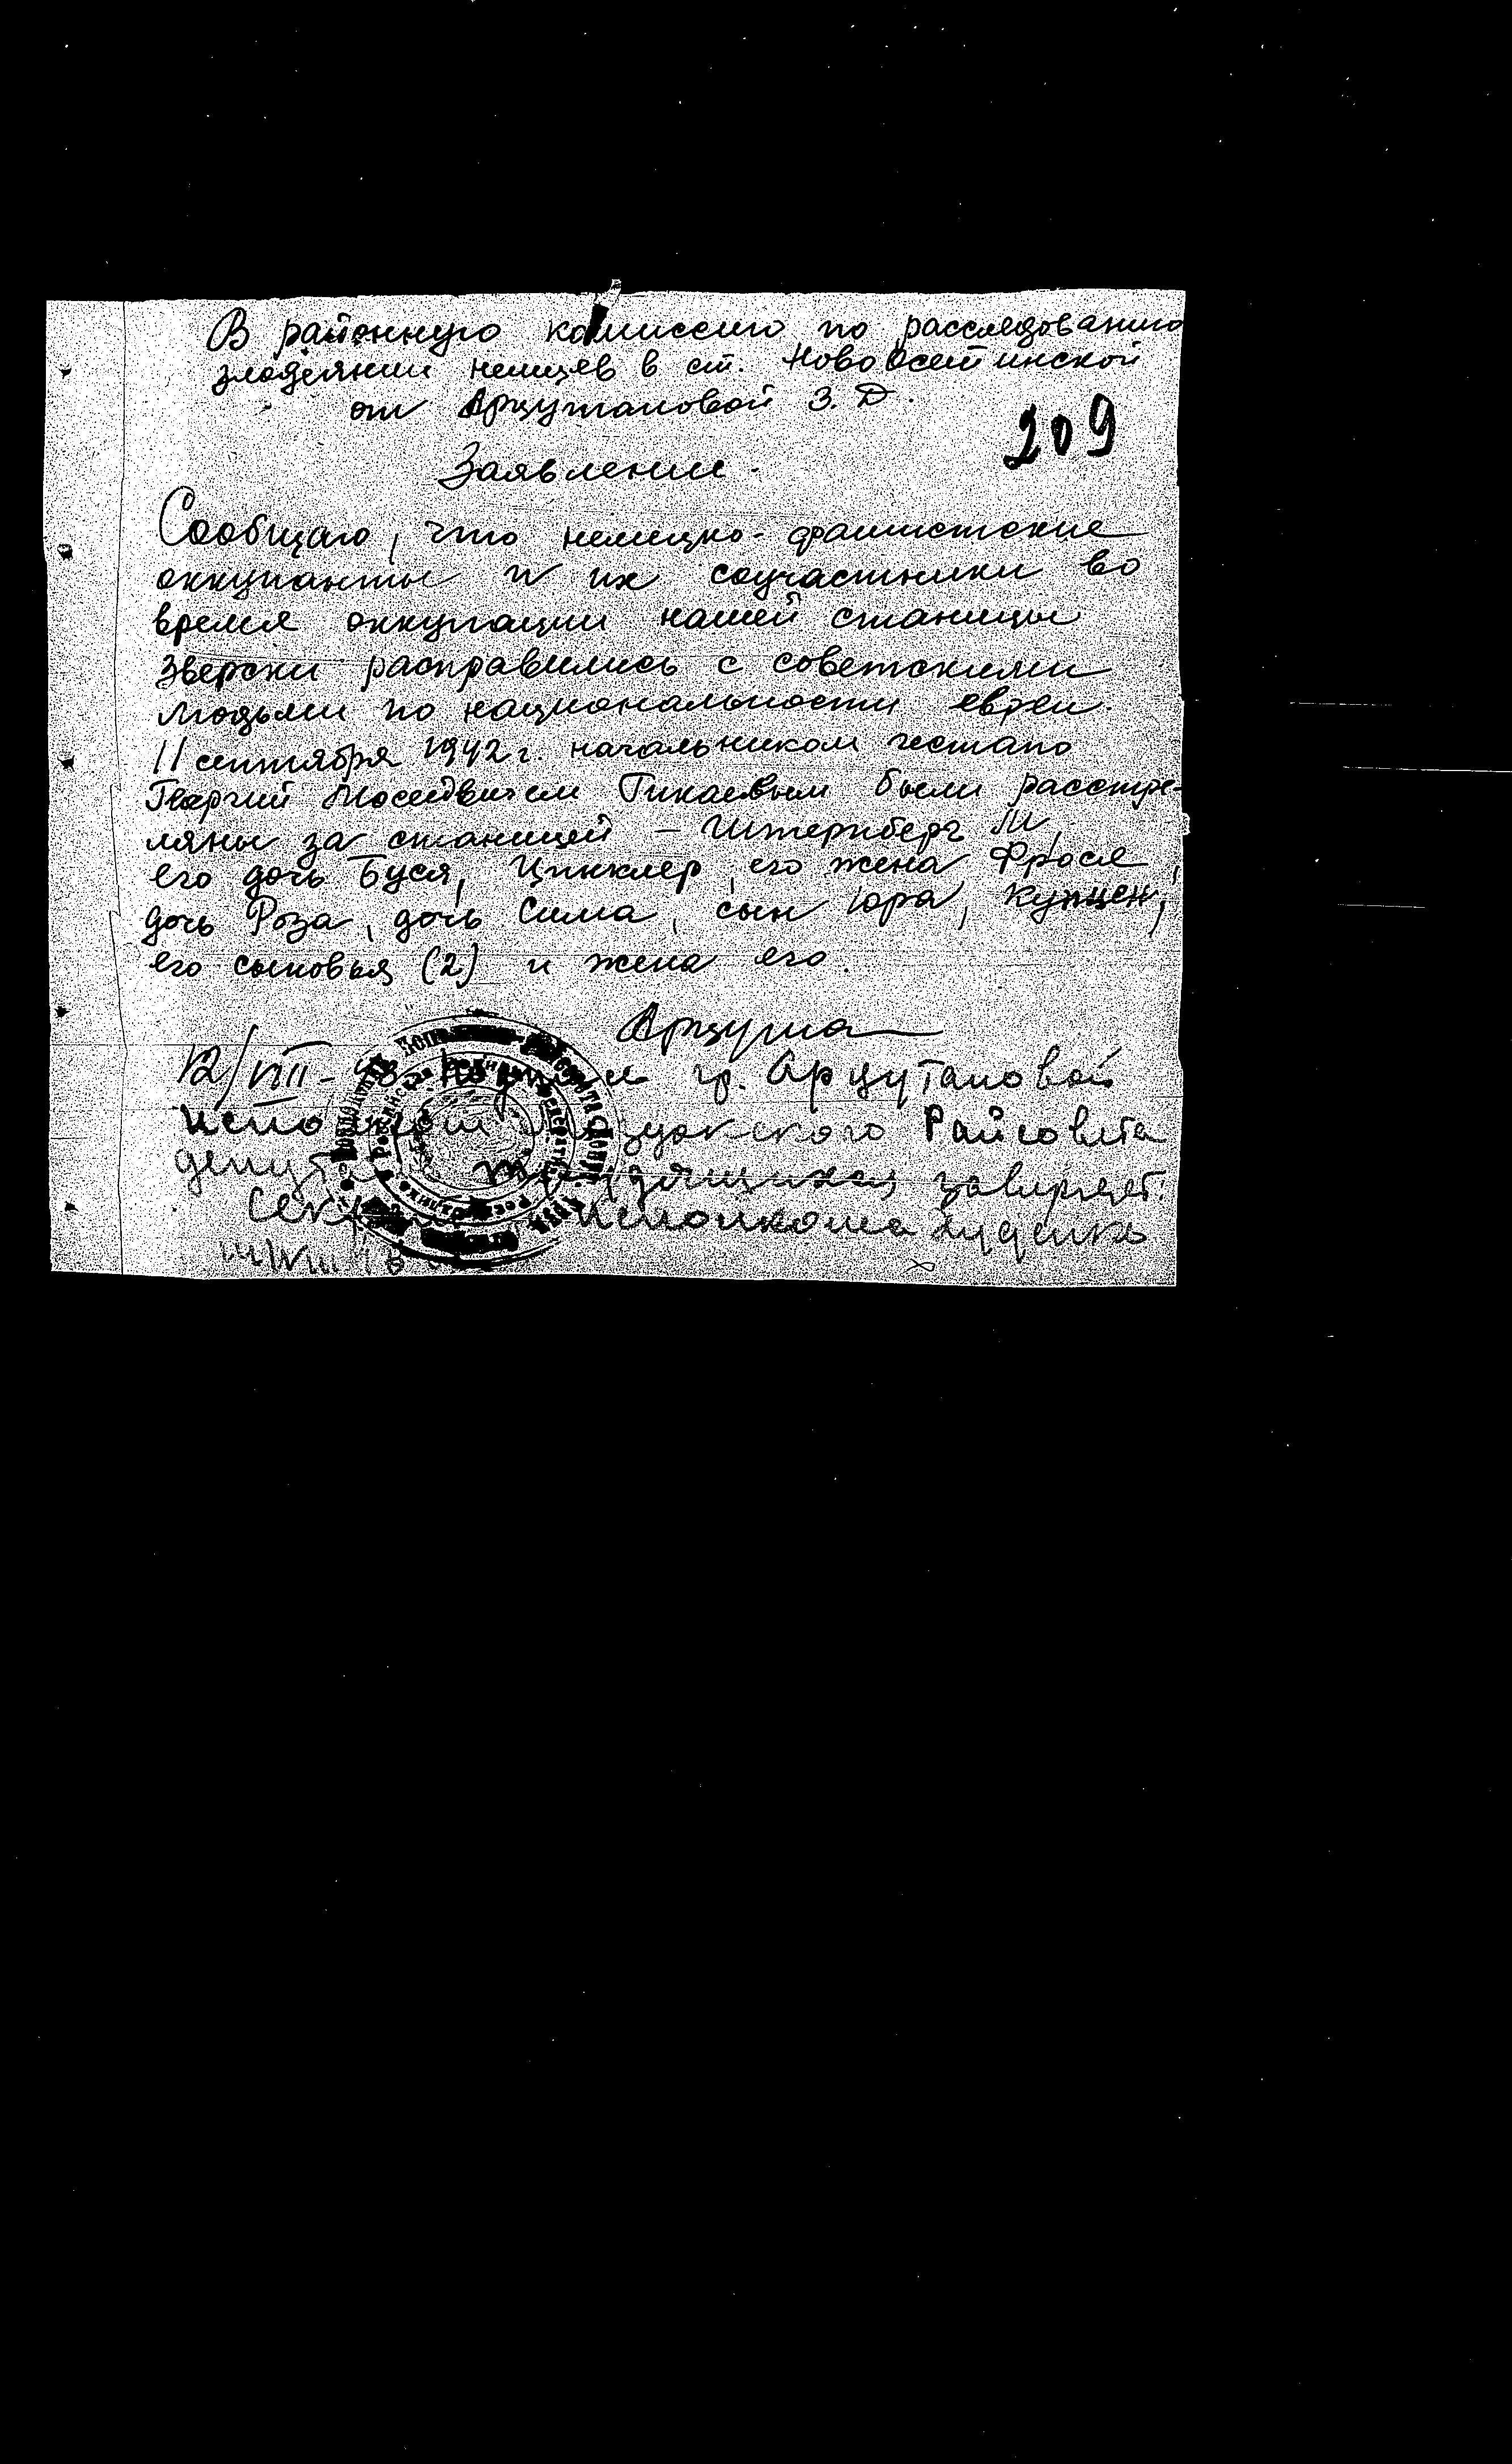 В районную комиссию по расследованию
злодеянии немцев в ст. Ново Осетинской
от Арцутановой З. Д.
209
Заявление.
Сообщаю, что немецко-фашистские
оккупанты и их соучастники во
время оккупации нашей станицы
зверски расправились с советскими
людьми по национальности евреи.
11 сентября 1942 г. начальником гестапо
Георгий Моисеевичем Гикаевым были расстре-
ляны за станицей – Штернберг М,
его дочь Буся, Цинклер, его жена Фрося,
дочь Роза, дочь Сима, сын Юра, Купцен,
его сыновья (2) и жена его.
Арцута
12/VIII-43 гр. Арцутановой
Райсовета
трудящихся заверяет.
Исполкома